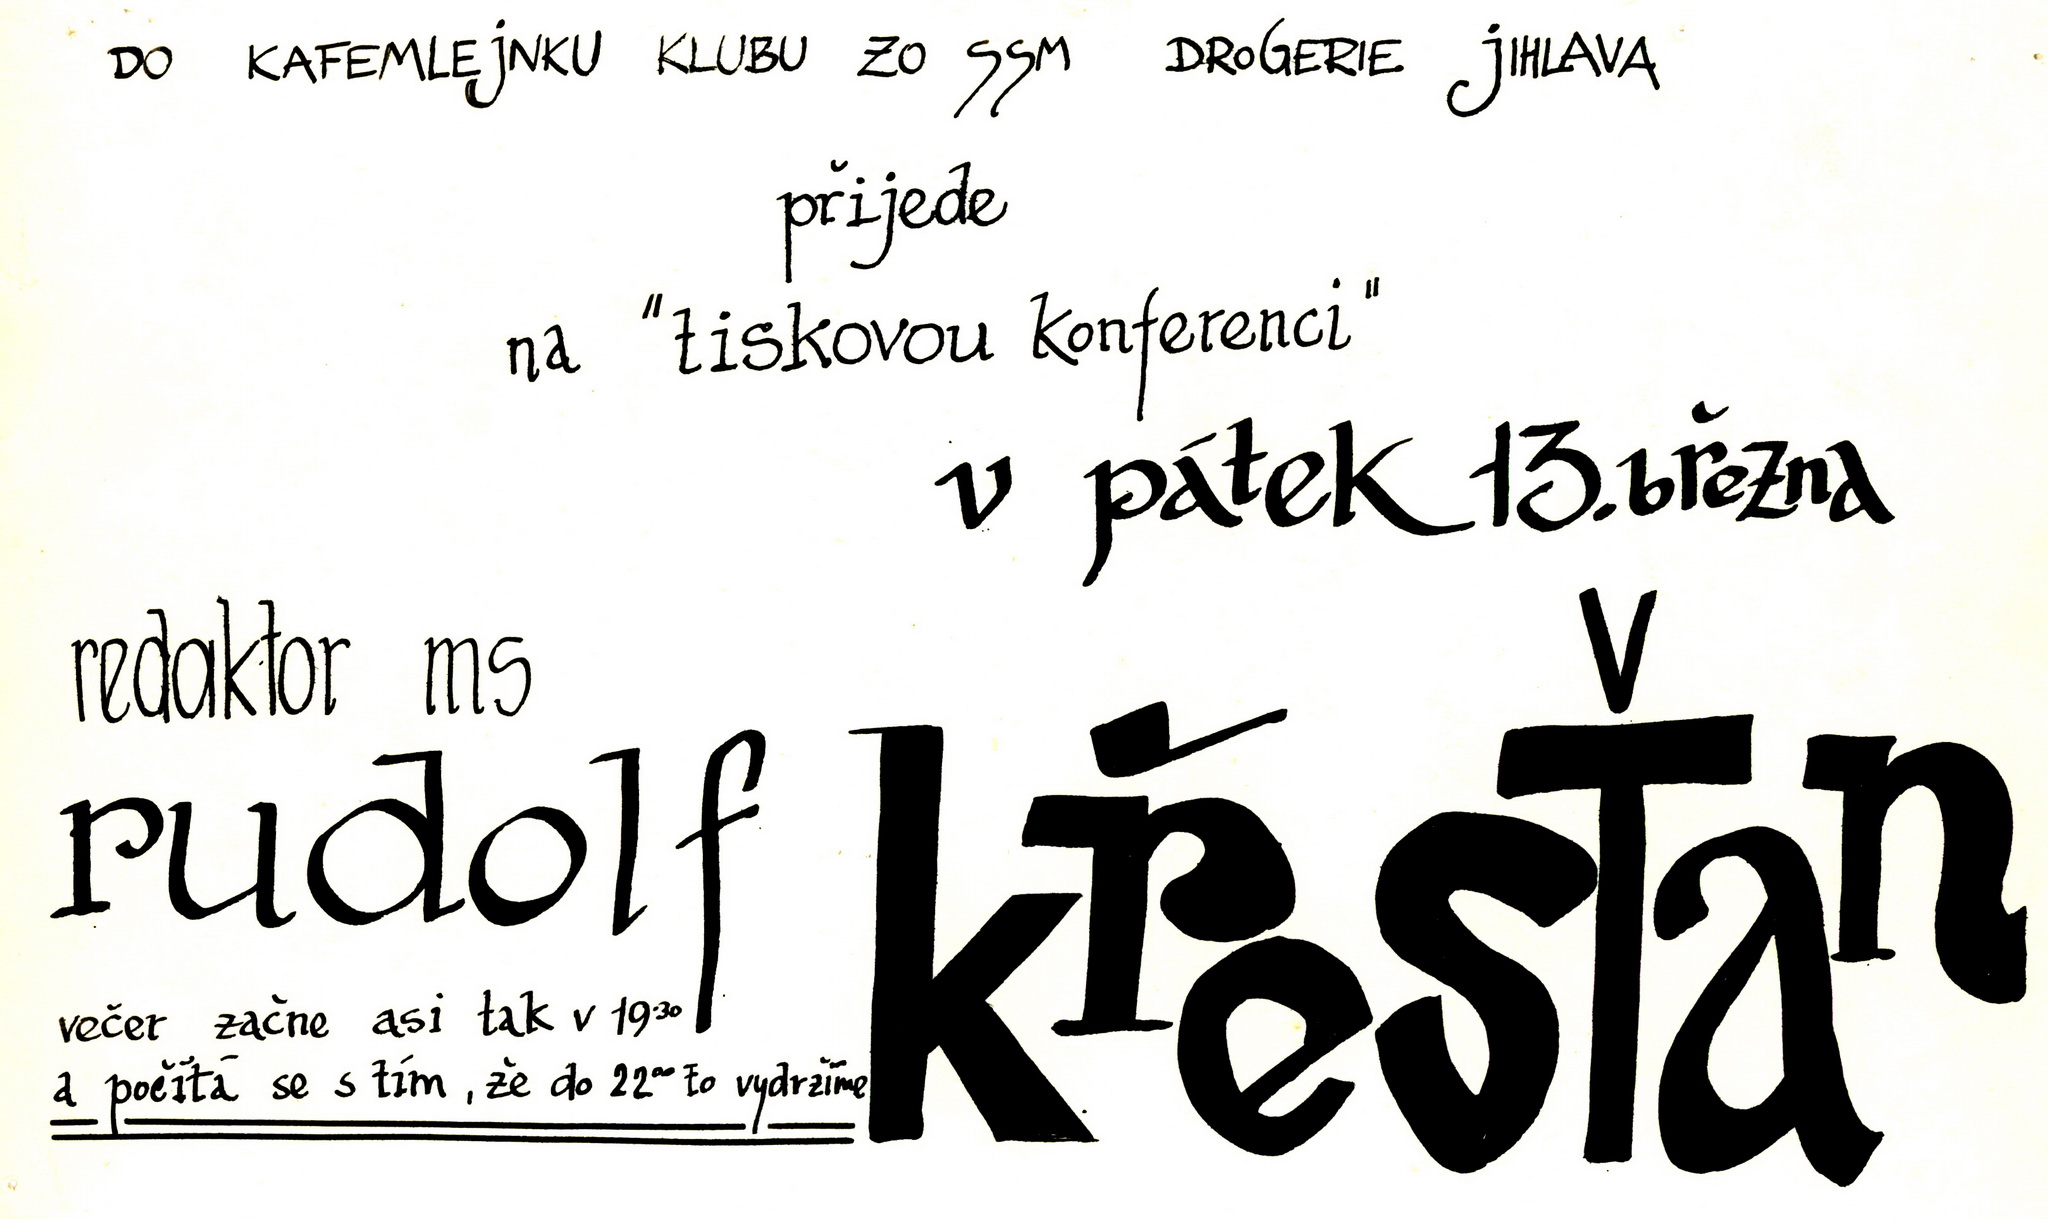 DO KAFEMLEJNKU KLUBU ZO SSM DROGERIE JIHLAVA
přijede
na "tiskovou konferenci"
v pátek 13. března
redaktor ms
rudolf křesťan
večer začne asi tak v 19.30
a počítá se s tím, že do 22⁰⁰ to vydržíme